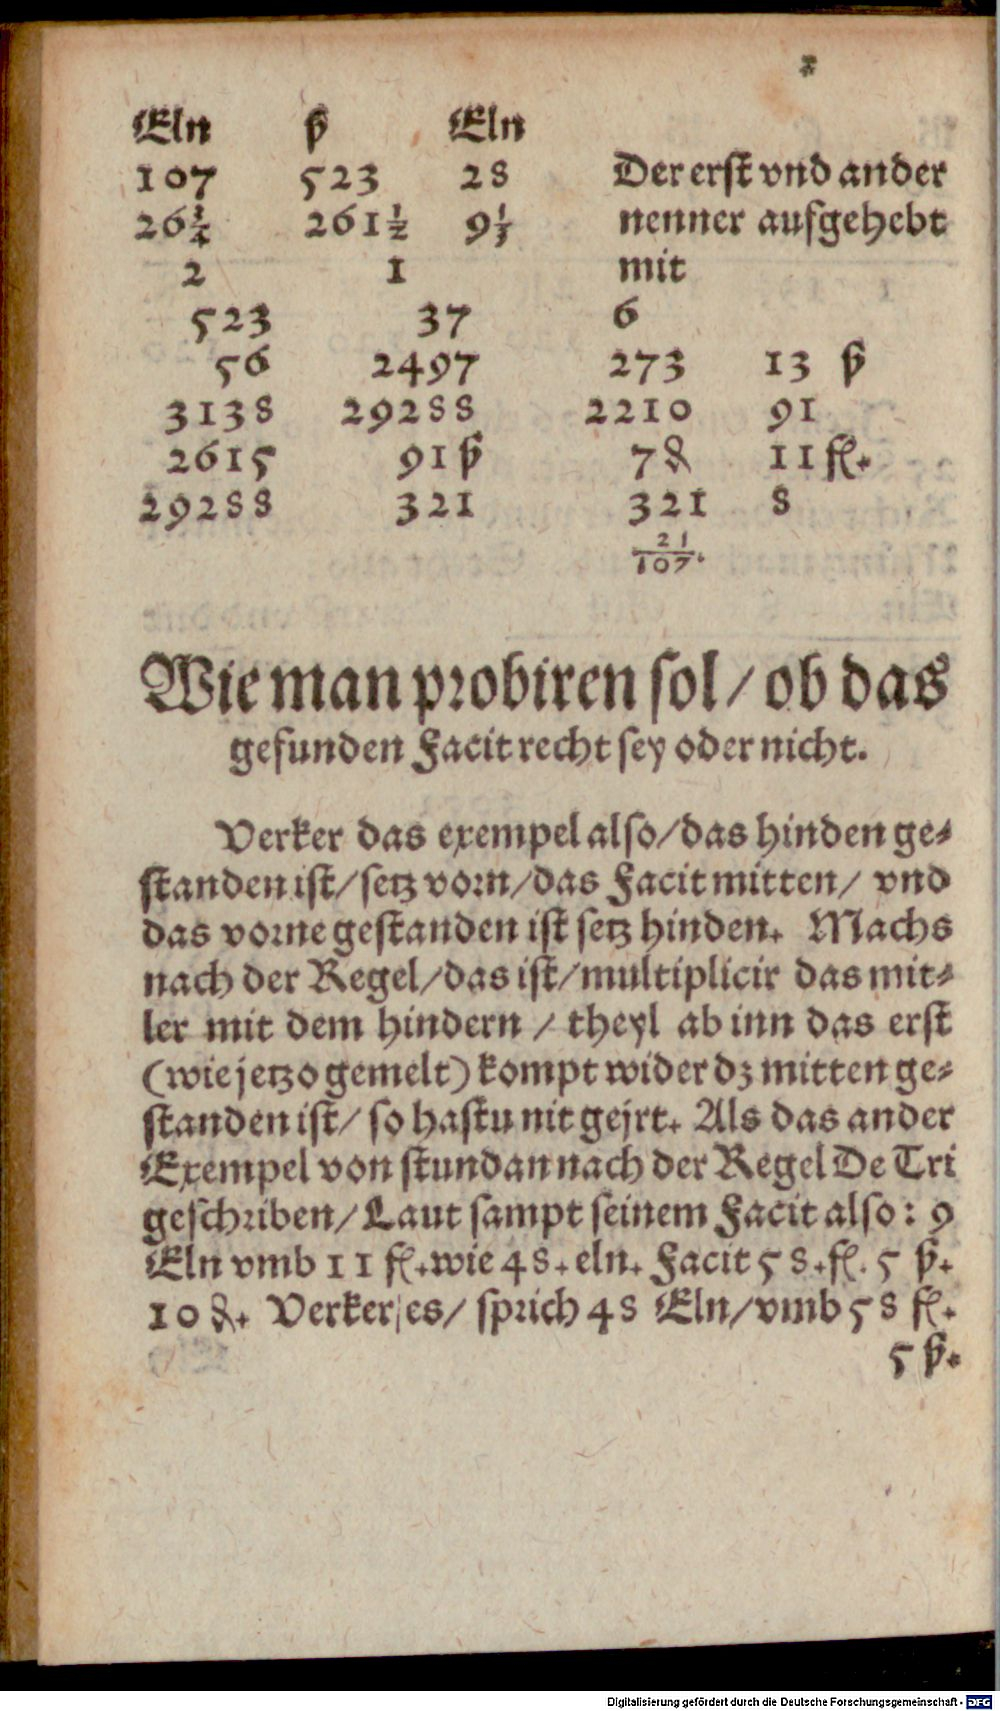 Eln ß Eln
107 523 28 Der erst vnd ander
26¾ 261½ 9⅓ nenner aufgehebt
2 1 mit
523 37 6
56 2497 273 13 ß
3138 29288 2210 91
2615 91 ß 7 ₰ 11 fl.
29288 321 321 8
21/107.
Wie man probiren sol / ob das
gefunden Facit recht sey oder nicht.
Verker das exempel also / das hinden ge⸗
standen ist / setz vorn / das Facit mitten / vnd
das vorne gestanden ist setz hinden. Machs
nach der Regel / das ist / multiplicir das mit⸗
ler mit dem hindern / theyl ab inn das erst
(wie jetzo gemelt) kompt wider dz mitten ge⸗
standen ist / so hastu nit gejrt. Als das ander
Exempel von stundan nach der Regel De Tri
geschriben / Laut sampt seinem Facit also: 9
Eln vmb 11 fl. wie 48. eln. Facit 58. fl. 5 ß.
10 ₰. Verker es / sprich 48 Eln / vmb 58 fl.
5 ß.
Digitalisierung gefördert durch die Deutsche Forschungsgemeinschaft - DFG